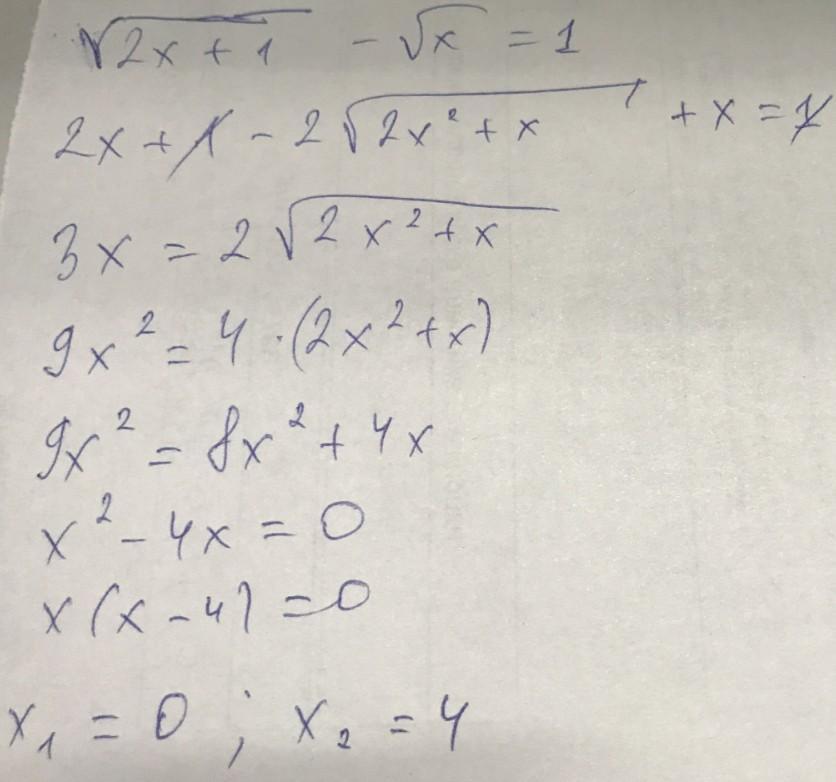 √(2x + 1) - √x = 1
2x + 1 - 2√(2x² + x) + x = 1
3x = 2√(2x² + x)
9x² = 4 · (2x² + x)
9x² = 8x² + 4x
x² - 4x = 0
x(x - 4) = 0
x₁ = 0 ; x₂ = 4